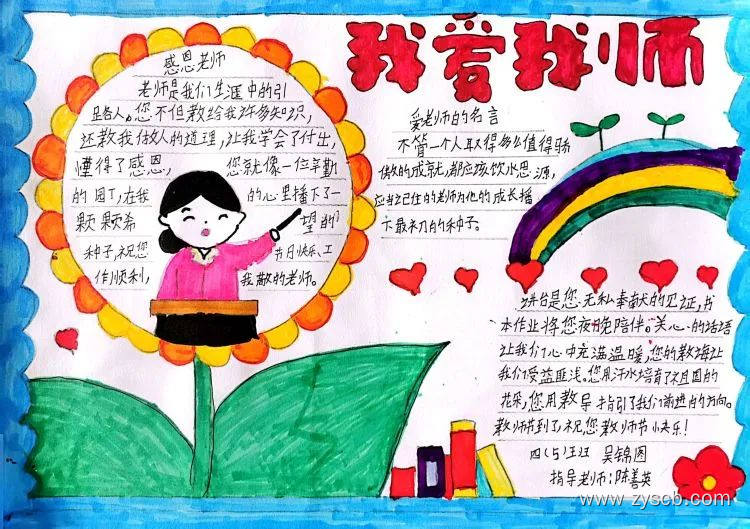 我爱我师
感恩老师
老师是我们生涯中的引
路人。您不但教给我许多知识,
还教我做人的道理,让我学会了付出,
懂得了感恩, 您就像一位辛勤
的园丁,在我 的心里播下了一
颗颗希 望的
种子,祝您 节日快乐、工
作顺利, 我敬的老师。
爱老师的名言
不管一个人取得多么值得骄
傲的成就,都应该饮水思源,
应当记住的老师为他的成长播
下最初的种子。
讲台是您无私奉献的见证,书
本作业将您夜晚陪伴。关心的话语
让我们心中充满温暖,您的教诲让
我们受益匪浅。您用汗水培育了祖国的
花朵,您用教导指引了我们前进的方向。
教师节到了,祝您教师节快乐!
四(5)班 吴锦图
指导老师:陈善英
www.zyscb.com